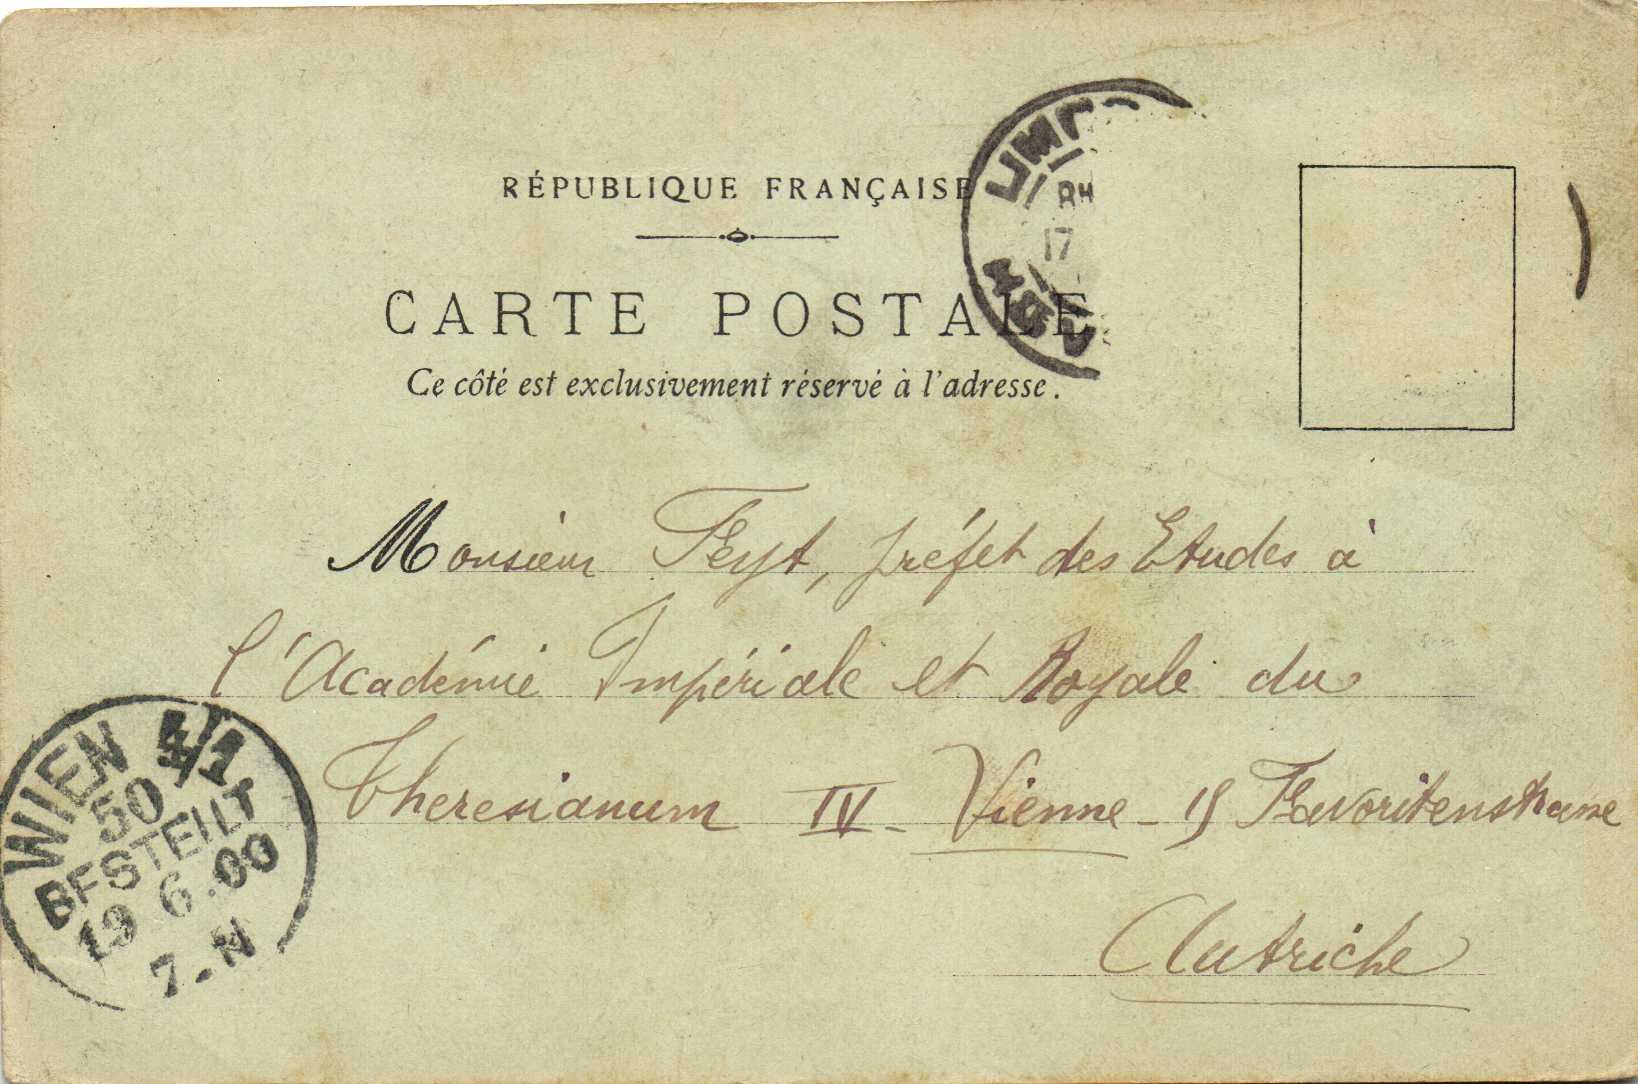 RÉPUBLIQUE FRANÇAISE
CARTE POSTALE
Ce côté est exclusivement réservé à l'adresse.
17
Monsieur Feyt, préfet des Etudes à
l'Académie Impériale et Royale du
Theresianum IV - Vienne - 15 Favoritenstrasse
Autriche
WIEN 4/1
50
BESTEILT
19 6.00
7-N